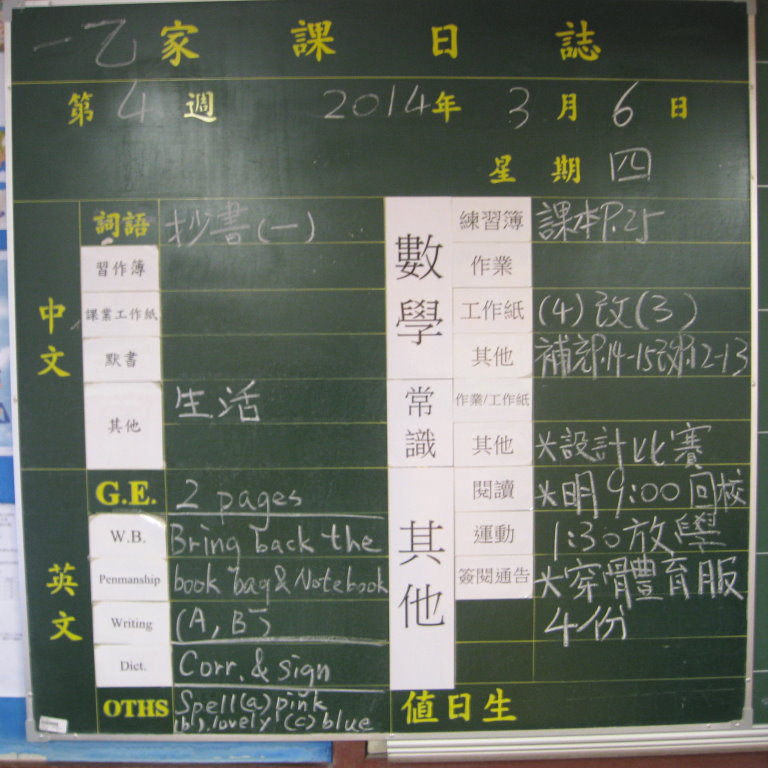 一乙家課日誌
第4週 2014年3月6日
星期四
中文
詞語 抄書(一)
習作簿
課業工作紙
默書
其他 生活
英文
G.E. 2 pages
W.B. Bring back the
Penmanship book bag & Notebook
Writing (A, B)
Dict. Corr. & sign
OTHS Spell (a) pink
(b). lovely (c) blue
數學
練習簿 課本P.25
作業
工作紙 (4) 改(3)
其他 補充P.14-15改P.12-13
常識
作業/工作紙
其他 *設計比賽
其他
閱讀 *明9:00回校
運動 1:30放學
簽閱通告 *穿體育服
4份
值日生